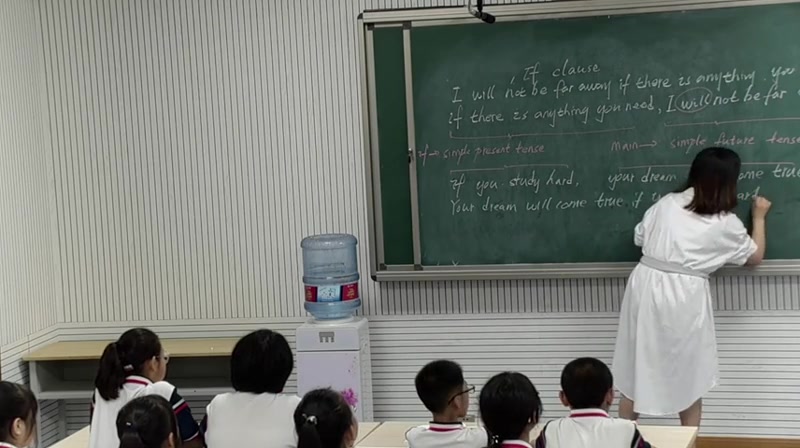 If clause
I will not be far away if there is anything you
if there is anything you need, I will not be far
if → simple present tense main → simple future tense
If you study hard, your dream come true
Your dream will come true if